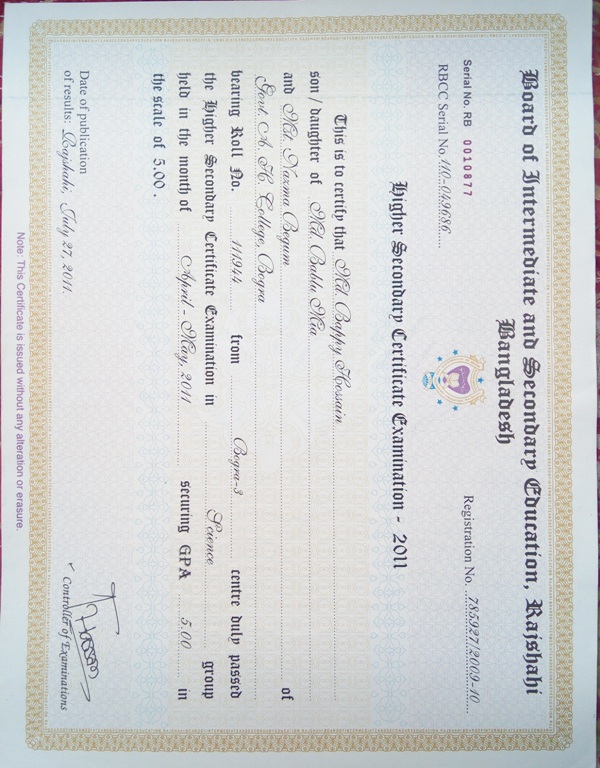 Board of Intermediate and Secondary Education, Rajshahi
Bangladesh
Serial No. RB 0010877
RBCC Serial No. 110-049686
Registration No. 785927/2009-10
Higher Secondary Certificate Examination - 2011
This is to certify that Md. Bappy Hossain
son / daughter of Md. Bablu Mia
and Mst. Nazma Begum of
Govt. A. H. College, Bogra
bearing Roll No. 111944 from Bogra-3 centre duly passed
the Higher Secondary Certificate Examination in Science group
held in the month of April - May, 2011 securing GPA 5.00 in
the scale of 5.00.
Date of publication
of results: Rajshahi, July 27, 2011.
Controller of Examinations
Note: This Certificate is issued without any alteration or erasure.